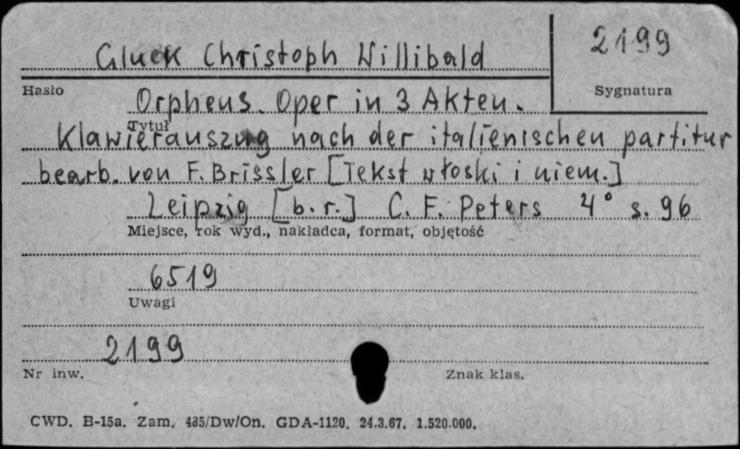 Gluck Christoph Willibald
2199
Hasło
Sygnatura
Orpheus. Oper in 3 Akten.
Tytuł
Klawierauszug nach der italienischen partitur
bearb. von F. Brissler [Tekst włoski i niem.]
Leipzig [b.r.] C. F. Peters 4° s. 96
Miejsce, rok wyd., nakładca, format, objętość
6519
Uwagi
2199
Nr inw.
Znak klas.
CWD. B-15a. Zam. 485/Dw/On. GDA-1120. 24.3.67. 1.520.000.